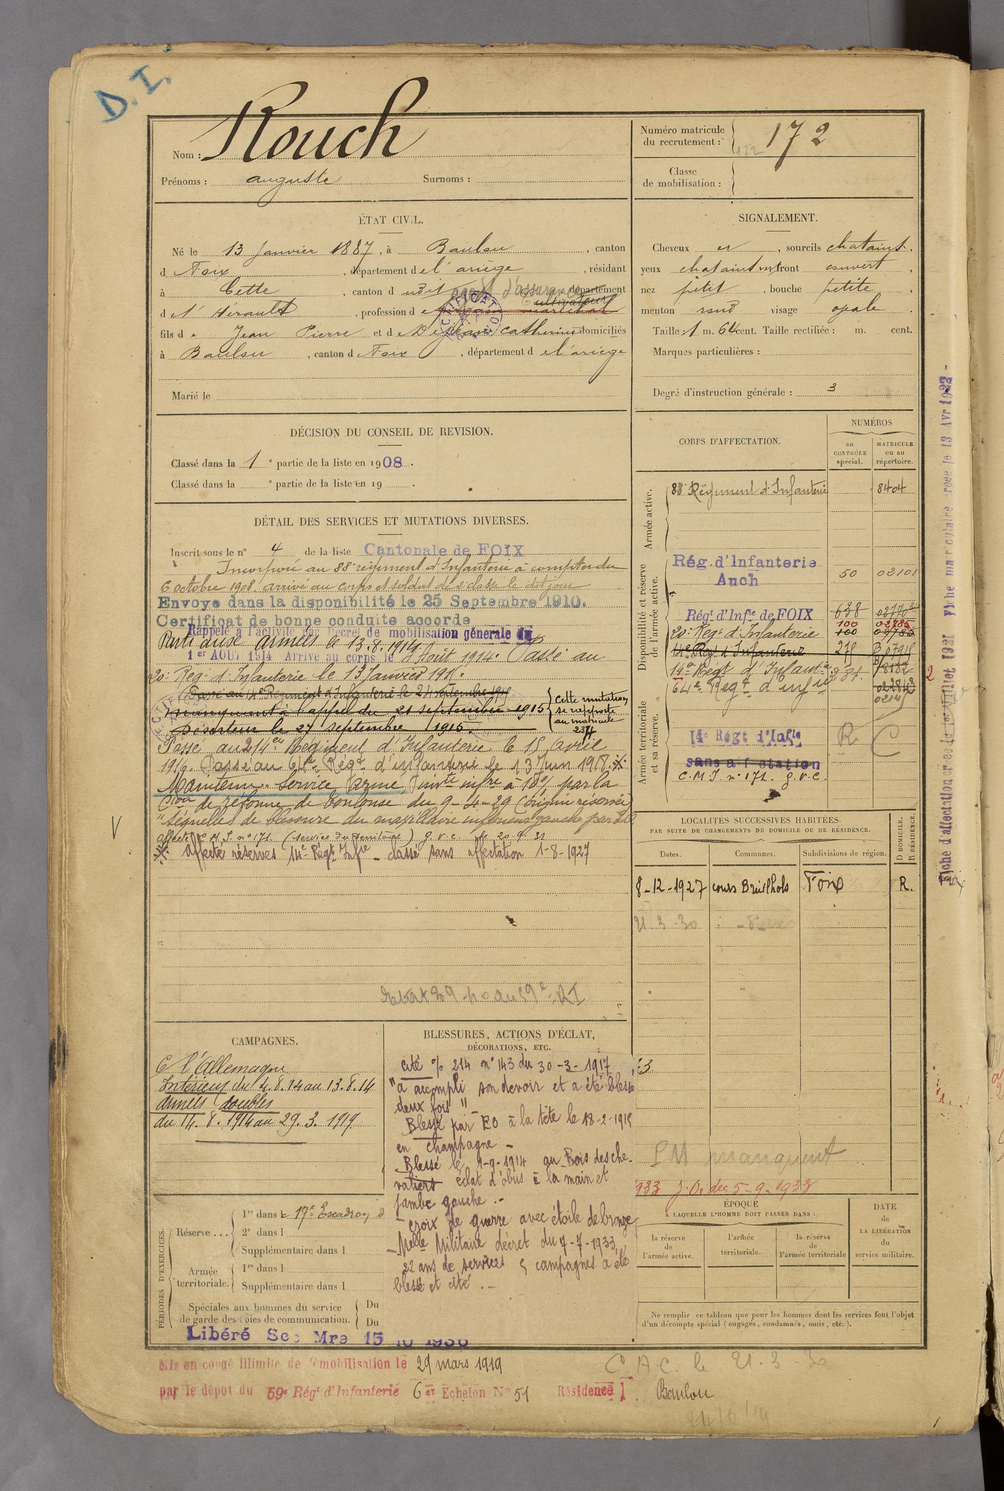 D. I.
Nom : Rouch
Prénoms : auguste Surnoms :
Numéro matricule du recrutement : 172
Classe de mobilisation :
ÉTAT CIVIL.
Né le 13 Janvier 1887, à Baulou, canton
d Foix, département de l'ariège, résidant
à Cette, canton d udit agent d'assurance département
d l'Hérault, profession de cultivateur
fils de Jean Pierre et de Catherine domiciliés
à Baulou, canton d Foix, département de l'ariège
Marié le
SIGNALEMENT.
Cheveux et, sourcils chatains.
yeux chatains verts front couvert,
nez petit, bouche petite,
menton rond visage ovale.
Taille : 1 m. 64 cent. Taille rectifiée : m. cent.
Marques particulières :
Degré d'instruction générale : 3
DÉCISION DU CONSEIL DE REVISION.
Classé dans la 1e partie de la liste en 1908.
Classé dans la e partie de la liste en 19 .
DÉTAIL DES SERVICES ET MUTATIONS DIVERSES.
Inscrit sous le n° 4 de la liste Cantonale de FOIX
Incorporé au 88e régiment d'Infanterie à compter du
6 octobre 1908 arrivé au corps et soldat de 2e classe le dit jour
Envoyé dans la disponibilité le 25 Septembre 1910.
Certificat de bonne conduite accordé
Rappelé à l'activité par décret de mobilisation générale du
Parti aux armées le 13.8.1914
1er AOUT 1914 Arrivé au corps le 4 Août 1914. Passé au
20e Reg. d'Infanterie le 13 Janvier 1915.
Passé au 14e Régiment d'Infanterie le 21 septembre 1915
Manquant à l'appel du 21 septembre 1915
Déserteur le 27 septembre 1915.
Cette mutation
se rapporte
au matricule
Passé au 214e Régiment d'Infanterie le 15 avril
1916. Passé au 64e Regt d'infanterie le 13 Juin 1918.
Maintenu Service Armé, Invté infre à 10% par la
Cion de réforme de Toulouse du 9-4-29 (origin réservée)
"Séquelles de blessure du maxillaire inférieur gauche par
affecté C.M.I. n° 171. (service du territoire) g.v.c. le 20.9.31
Affecté réserves 14e Régt Infie - classé sans affectation 1-8-1927
CORPS D'AFFECTATION.
NUMÉROS
au CONTRÔLE spécial.
MATRICULE ou au répertoire.
Armée active.
88e Régiment d'Infanterie 8404
Disponibilité et réserve de l'armée active.
Rég. d'Infanterie
Auch 50 02101
Régt d'Infie de FOIX 638
20e Regt d'Infanterie 100
14e Regt d'Infanterie 275
14e Regt d'Infantie
64e Regt d'infie
Armée territoriale et sa réserve.
14e Régt d'Infie R C
sans affectation
C.M.I. n° 171. g.v.c.
LOCALITÉS SUCCESSIVES HABITÉES
PAR SUITE DE CHANGEMENTS DE DOMICILE OU DE RÉSIDENCE.
Dates. Communes. Subdivisions de région. D DOMICILE. R RÉSIDENCE.
8-12-1927 cours Bouilhols Foix R.
21.3.30
CAMPAGNES.
C. l'Allemagne
Intérieur du 4.8.14 au 13.8.14
armées doubles
du 14.8.1914 au 29.3.1919
BLESSURES, ACTIONS D'ÉCLAT,
DÉCORATIONS, ETC.
Cité % 214 n° 143 du 30-3-1917
"a accompli son devoir et a été blessé
deux fois"
Blessé par EO à la tête le 18-2-1915
en Champagne -
Blessé le 1-9-1914 au Bois des che-
valiers éclat d'obus à la main et
jambe gauche. -
croix de guerre avec étoile de bronze
- Mlle Militaire décret du 7-7-1933,
22 ans de services 5 campagnes a été
blessé et cité. -
PM manquent
933 J.O. du 5-9-1933
PÉRIODES D'EXERCICES.
Réserve... 1re dans le 17e Escadron
2e dans l
Supplémentaire dans l
Armée territoriale. 1re dans l
Supplémentaire dans l
Spéciales aux hommes du service
de garde des voies de communication. Du
Du
ÉPOQUE
À LAQUELLE L'HOMME DOIT PASSER DANS :
la réserve de l'armée active.
l'armée territoriale.
la réserve de l'armée territoriale
DATE de LA LIBÉRATION du service militaire.
Ne remplir ce tableau que pour les hommes dont les services font l'objet
d'un décompte spécial (engagés, condamnés, omis, etc.).
Libéré Sce Mre 15 10 1936
Mis en congé illimité de démobilisation le 29 mars 1919
par le dépôt du 59e Régt d'Infanterie 6e Echelon N° 51 Résidence Baulou
C.A.C. le 21.3.30